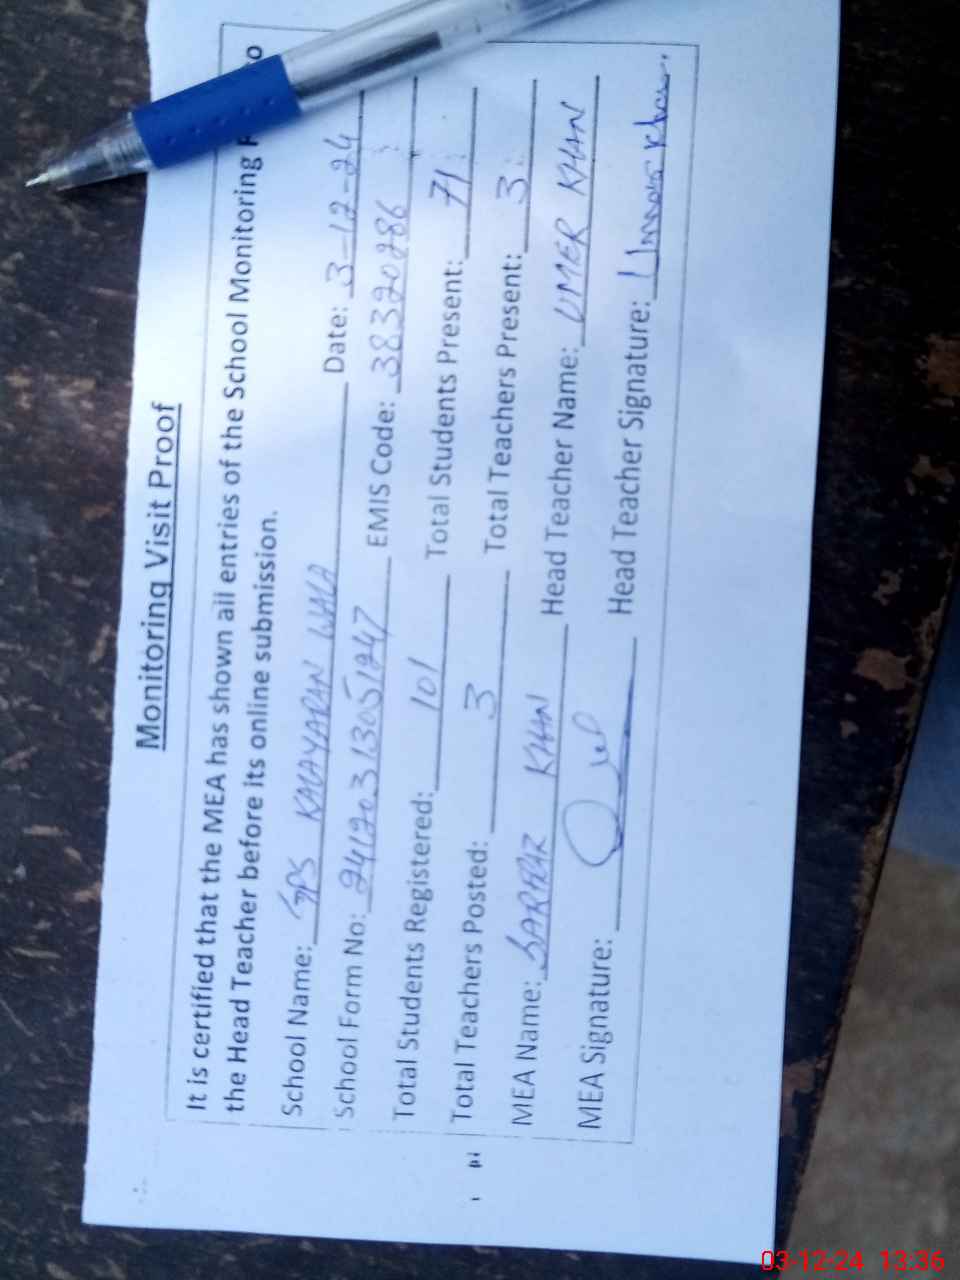 Monitoring Visit Proof
It is certified that the MEA has shown all entries of the School Monitoring
the Head Teacher before its online submission.
School Name: GPS KALAYARAN WALA Date: 3-12-24
School Form No: 24120313051247 EMIS Code: 38320286
Total Students Registered: 101 Total Students Present: 71
Total Teachers Posted: 3 Total Teachers Present: 3
MEA Name: SARFRAZ KHAN Head Teacher Name: UMER KHAN
MEA Signature: Head Teacher Signature: Umar Khan
03-12-24 13:36